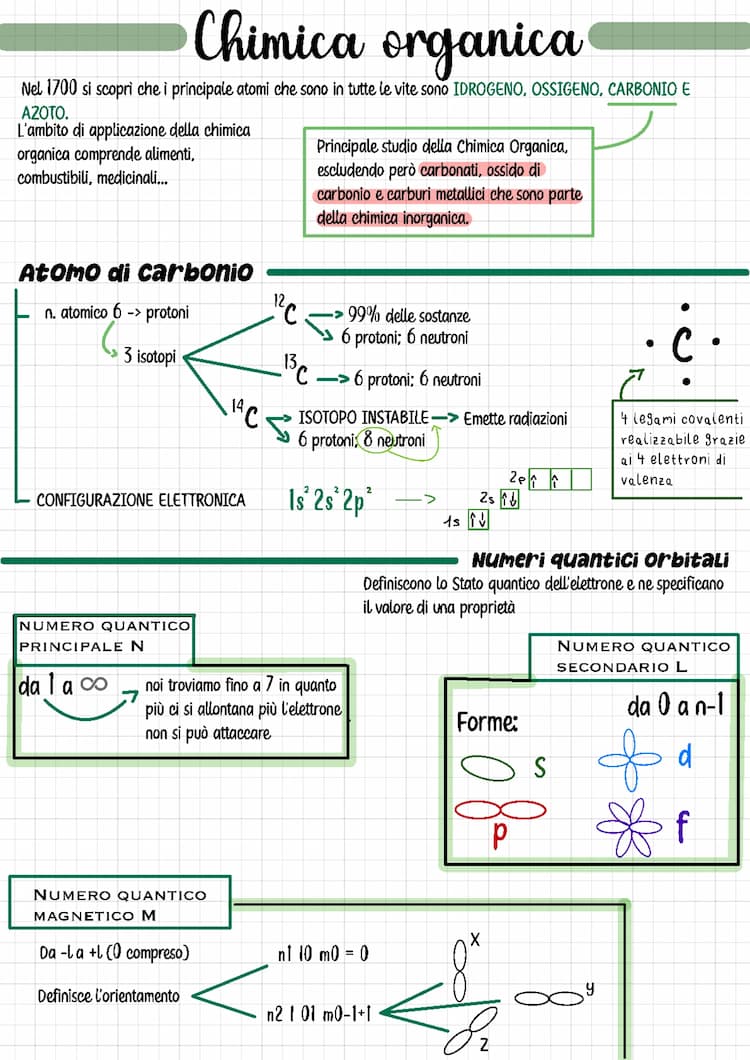 Chimica organica
Nel 1700 si scoprì che i principale atomi che sono in tutte le vite sono IDROGENO, OSSIGENO, CARBONIO E
AZOTO.
L'ambito di applicazione della chimica
organica comprende alimenti,
combustibili, medicinali...
Principale studio della Chimica Organica,
escludendo però carbonati, ossido di
carbonio e carburi metallici che sono parte
della chimica inorganica.
Atomo di carbonio
n. atomico 6 -> protoni
3 isotopi
12C -> 99% delle sostanze
6 protoni; 6 neutroni
13C -> 6 protoni; 6 neutroni
14C -> ISOTOPO INSTABILE -> Emette radiazioni
6 protoni; 8 neutroni
C
4 legami covalenti
realizzabile grazie
ai 4 elettroni di
valenza
CONFIGURAZIONE ELETTRONICA
1s² 2s² 2p² ->
2p ↑ ↑
2s ↑↓
1s ↑↓
Numeri quantici orbitali
Definiscono lo Stato quantico dell'elettrone e ne specificano
il valore di una proprietà
NUMERO QUANTICO
PRINCIPALE N
da 1 a ∞
noi troviamo fino a 7 in quanto
più ci si allontana più l'elettrone
non si può attaccare
NUMERO QUANTICO
SECONDARIO L
da 0 a n-1
Forme:
s
d
p
f
NUMERO QUANTICO
MAGNETICO M
Da -l a +l (0 compreso)
Definisce l'orientamento
n1 l0 m0 = 0
n2 l 01 m0-1+1
x
y
z